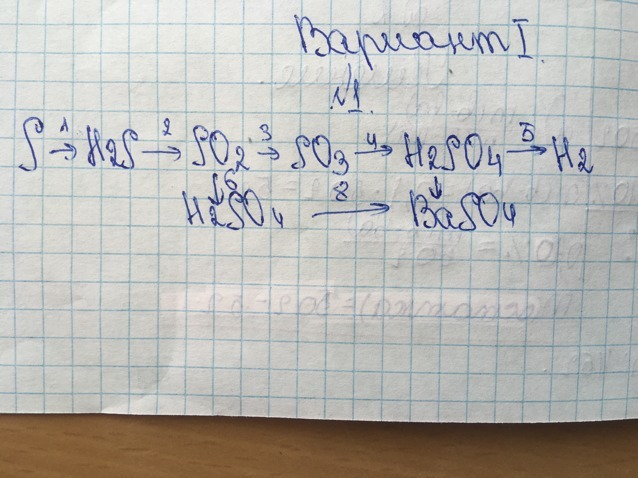 Вариант I.
№1.
S 1→ H2S 2→ SO2 3→ SO3 4→ H2SO4 5→ H2
↓6 ↓
H2SO4 8→ BaSO4